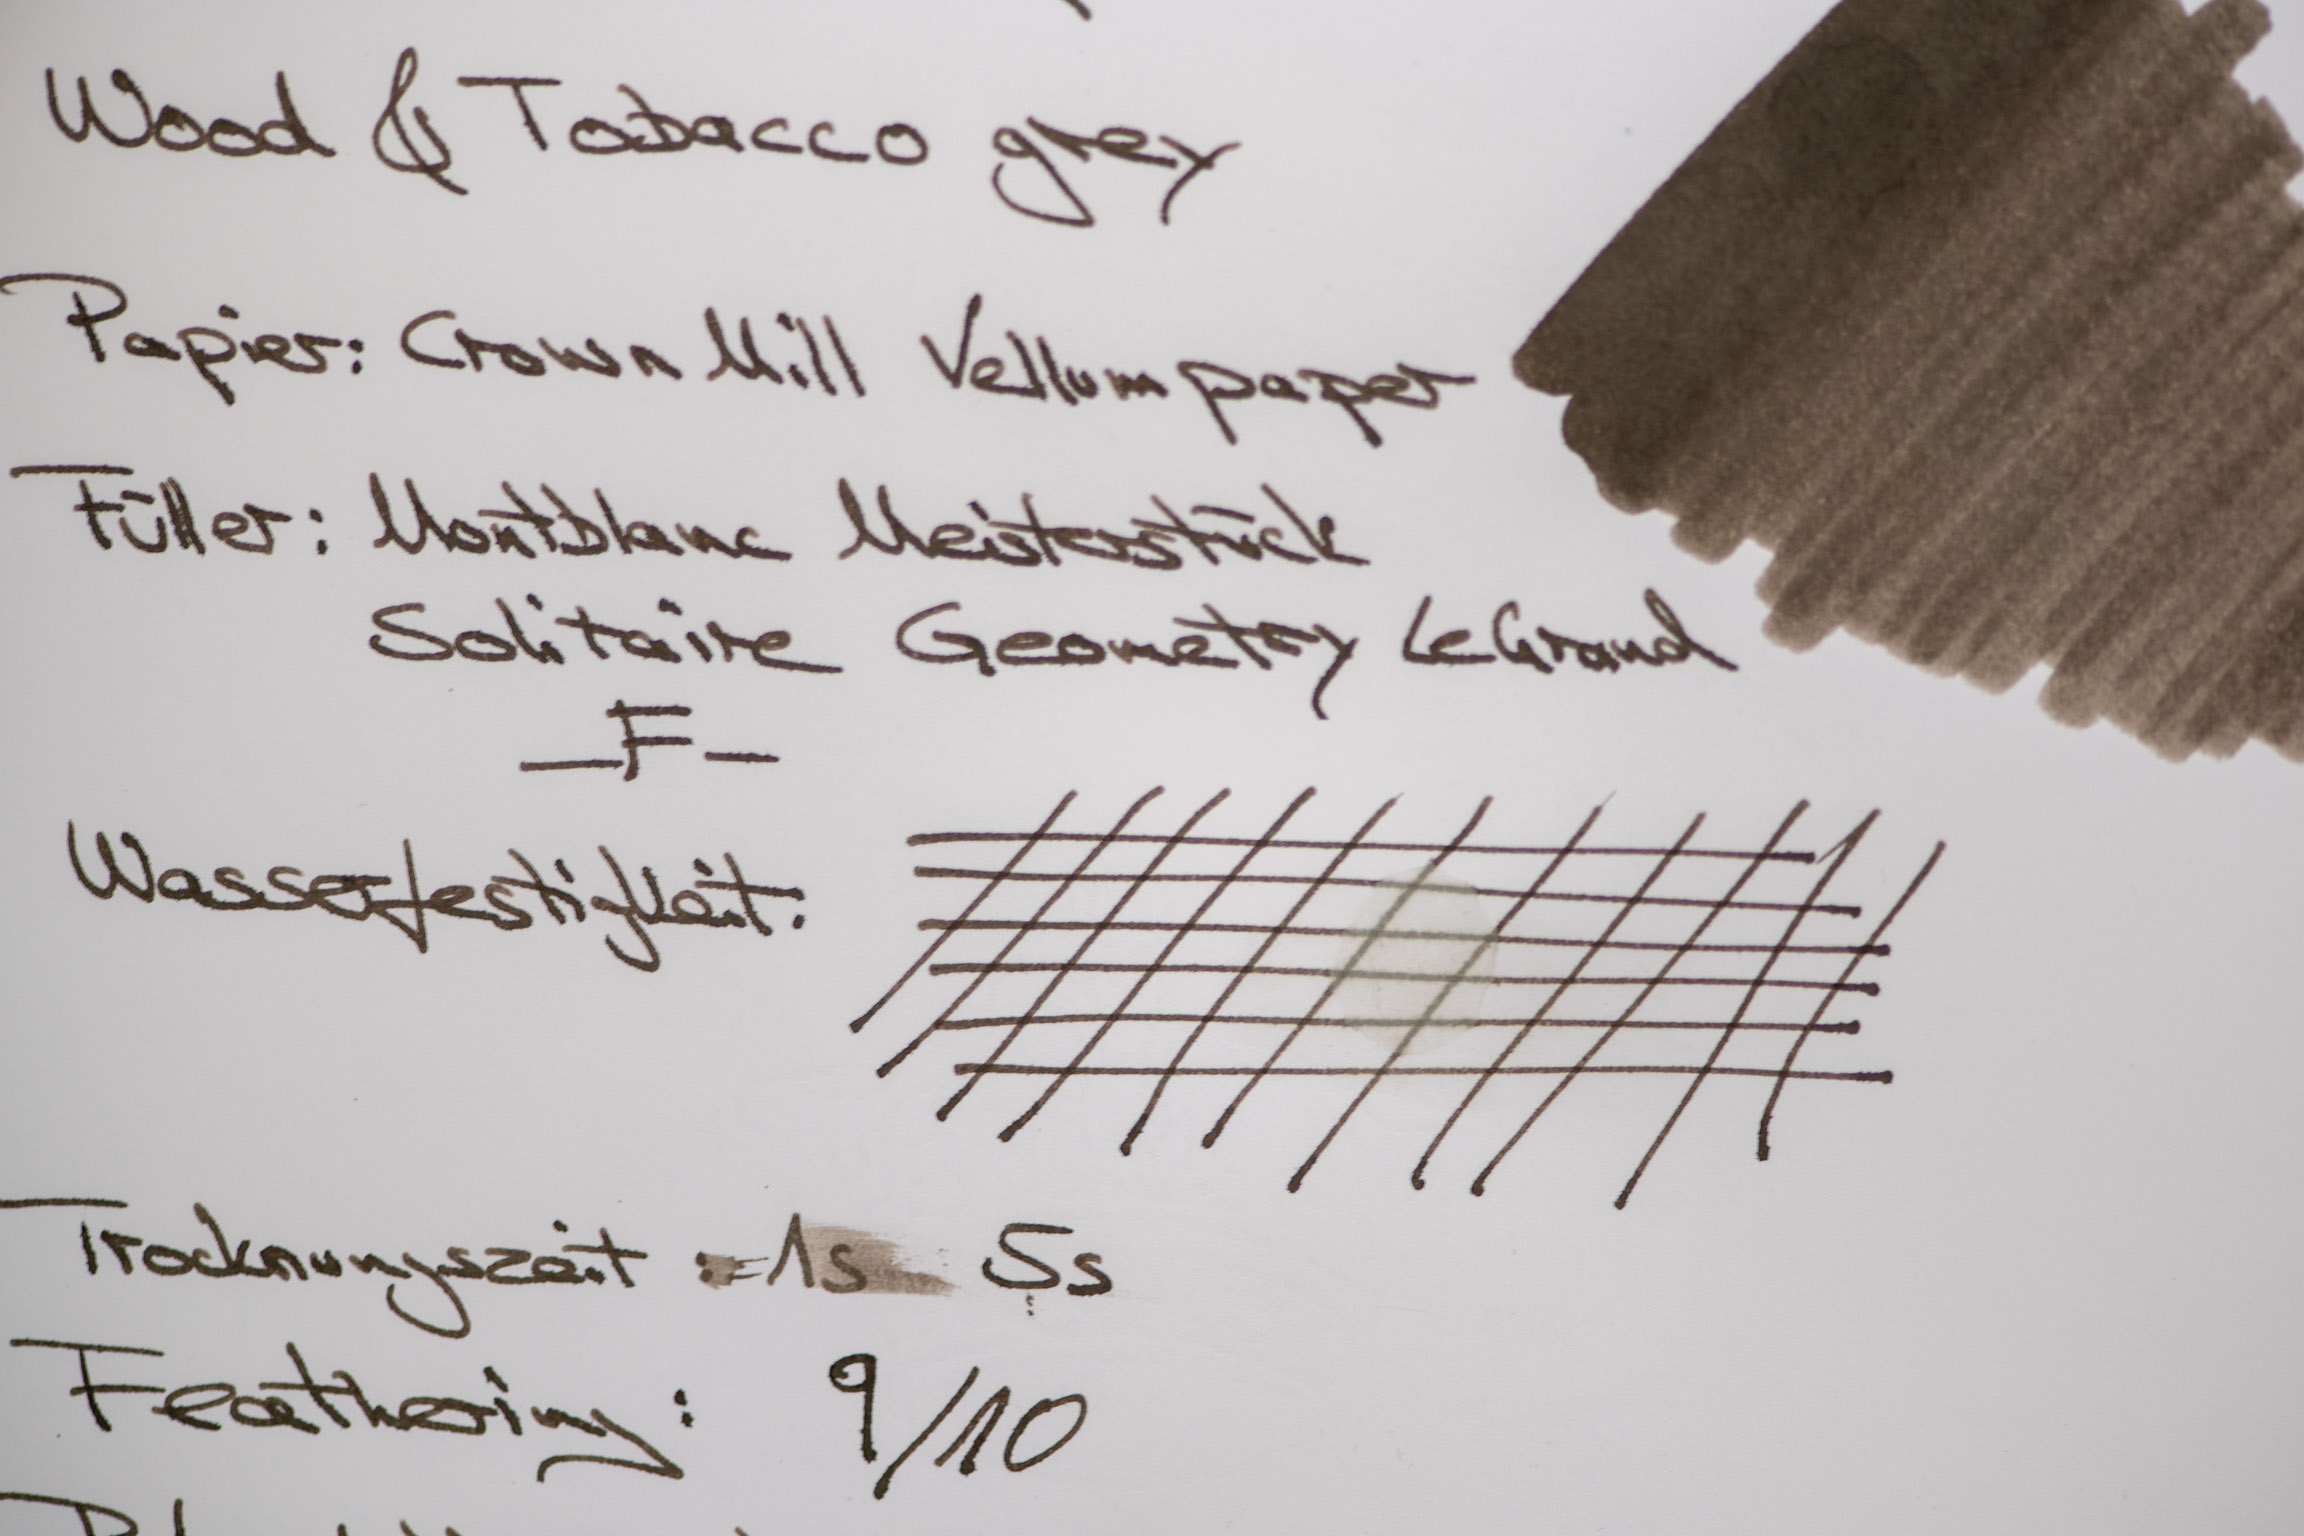 Wood & Tobacco grey
Papier: Crown Mill Vellum paper
Füller: Montblanc Meisterstück
Solitaire Geometry LeGrand
—F—
Wasserfestigkeit:
Trocknungszeit: 1s 5s
Feathering: 9/10